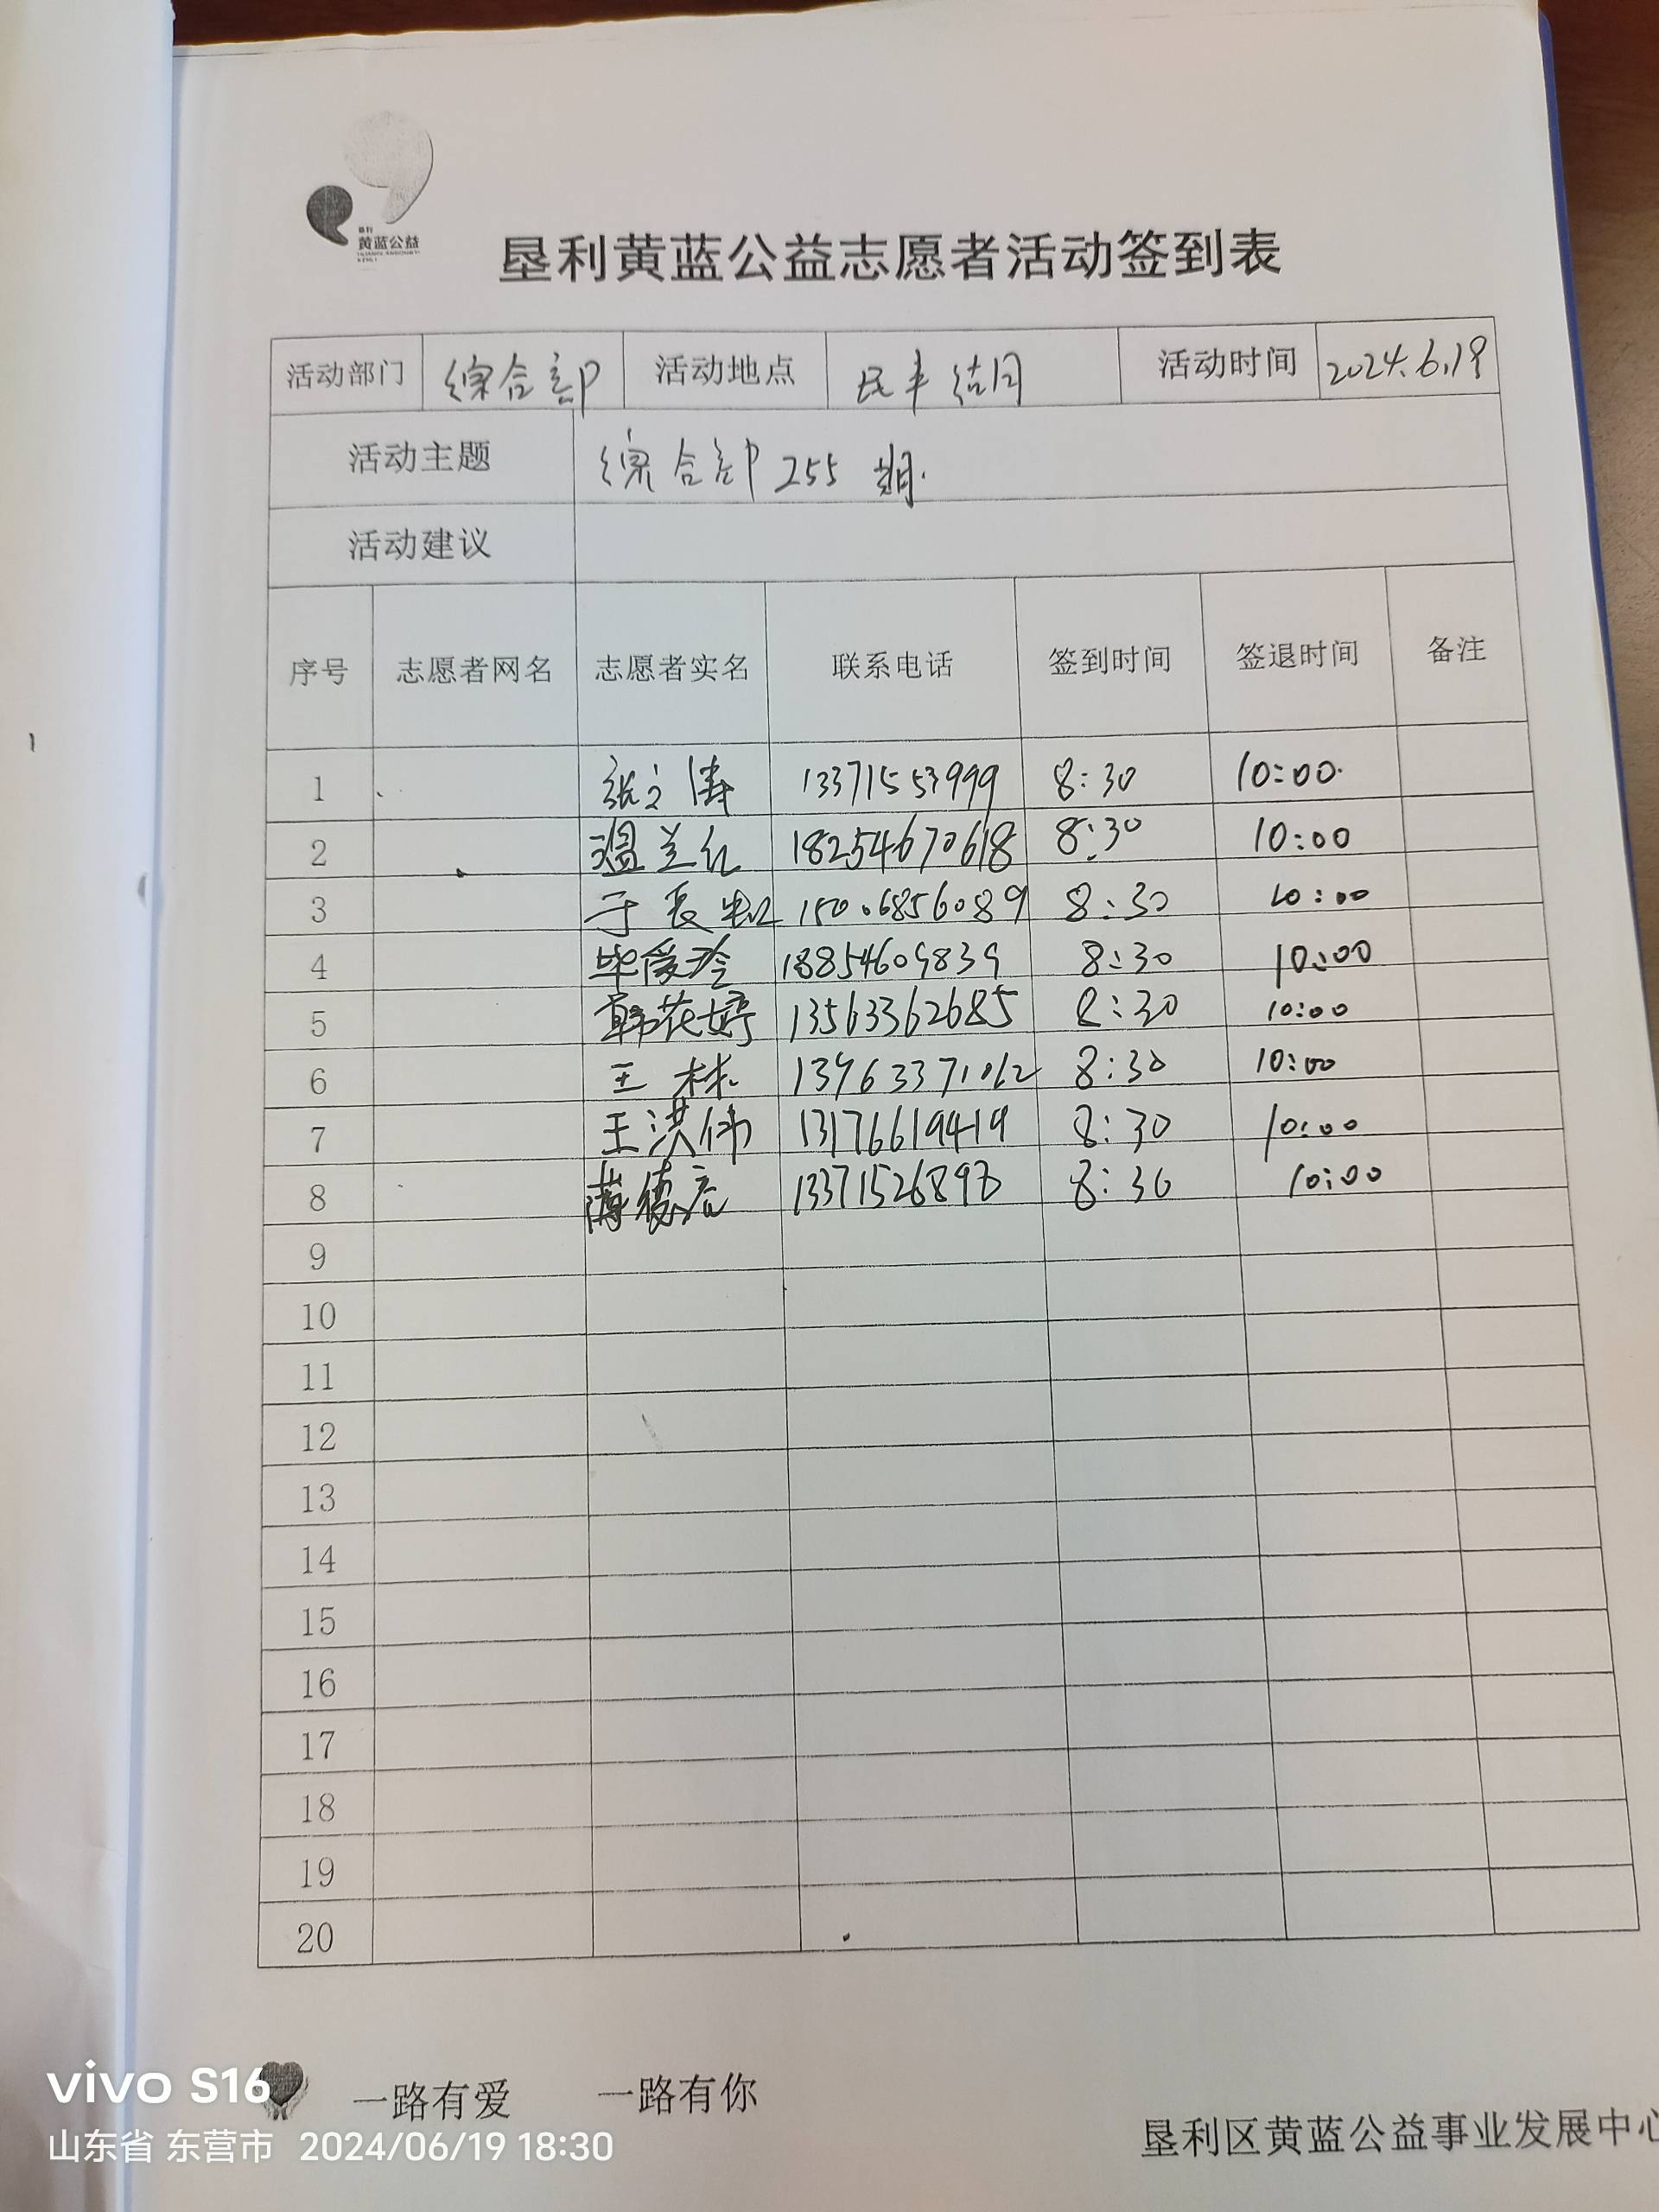 垦利
黄蓝公益
垦利黄蓝公益志愿者活动签到表
活动部门 综合部 活动地点 民丰 活动时间 2024.6.19
活动主题 综合部255期.
活动建议
序号 志愿者网名 志愿者实名 联系电话 签到时间 签退时间 备注
1 张立涛 13371553999 8:30 10:00
2 温兰红 18254670618 8:30 10:00
3 于长虹 15006856089 8:30 10:00
4 毕爱玲 18854609839 8:30 10:00
5 韩花婷 13563362685 8:30 10:00
6 王林 13963371062 8:30 10:00
7 王洪伟 13176619419 8:30 10:00
8 薄德 8:30 10:00
9
10
11
12
13
14
15
16
17
18
19
20
一路有爱 一路有你
垦利区黄蓝公益事业发展中心
vivo S16
山东省 东营市 2024/06/19 18:30